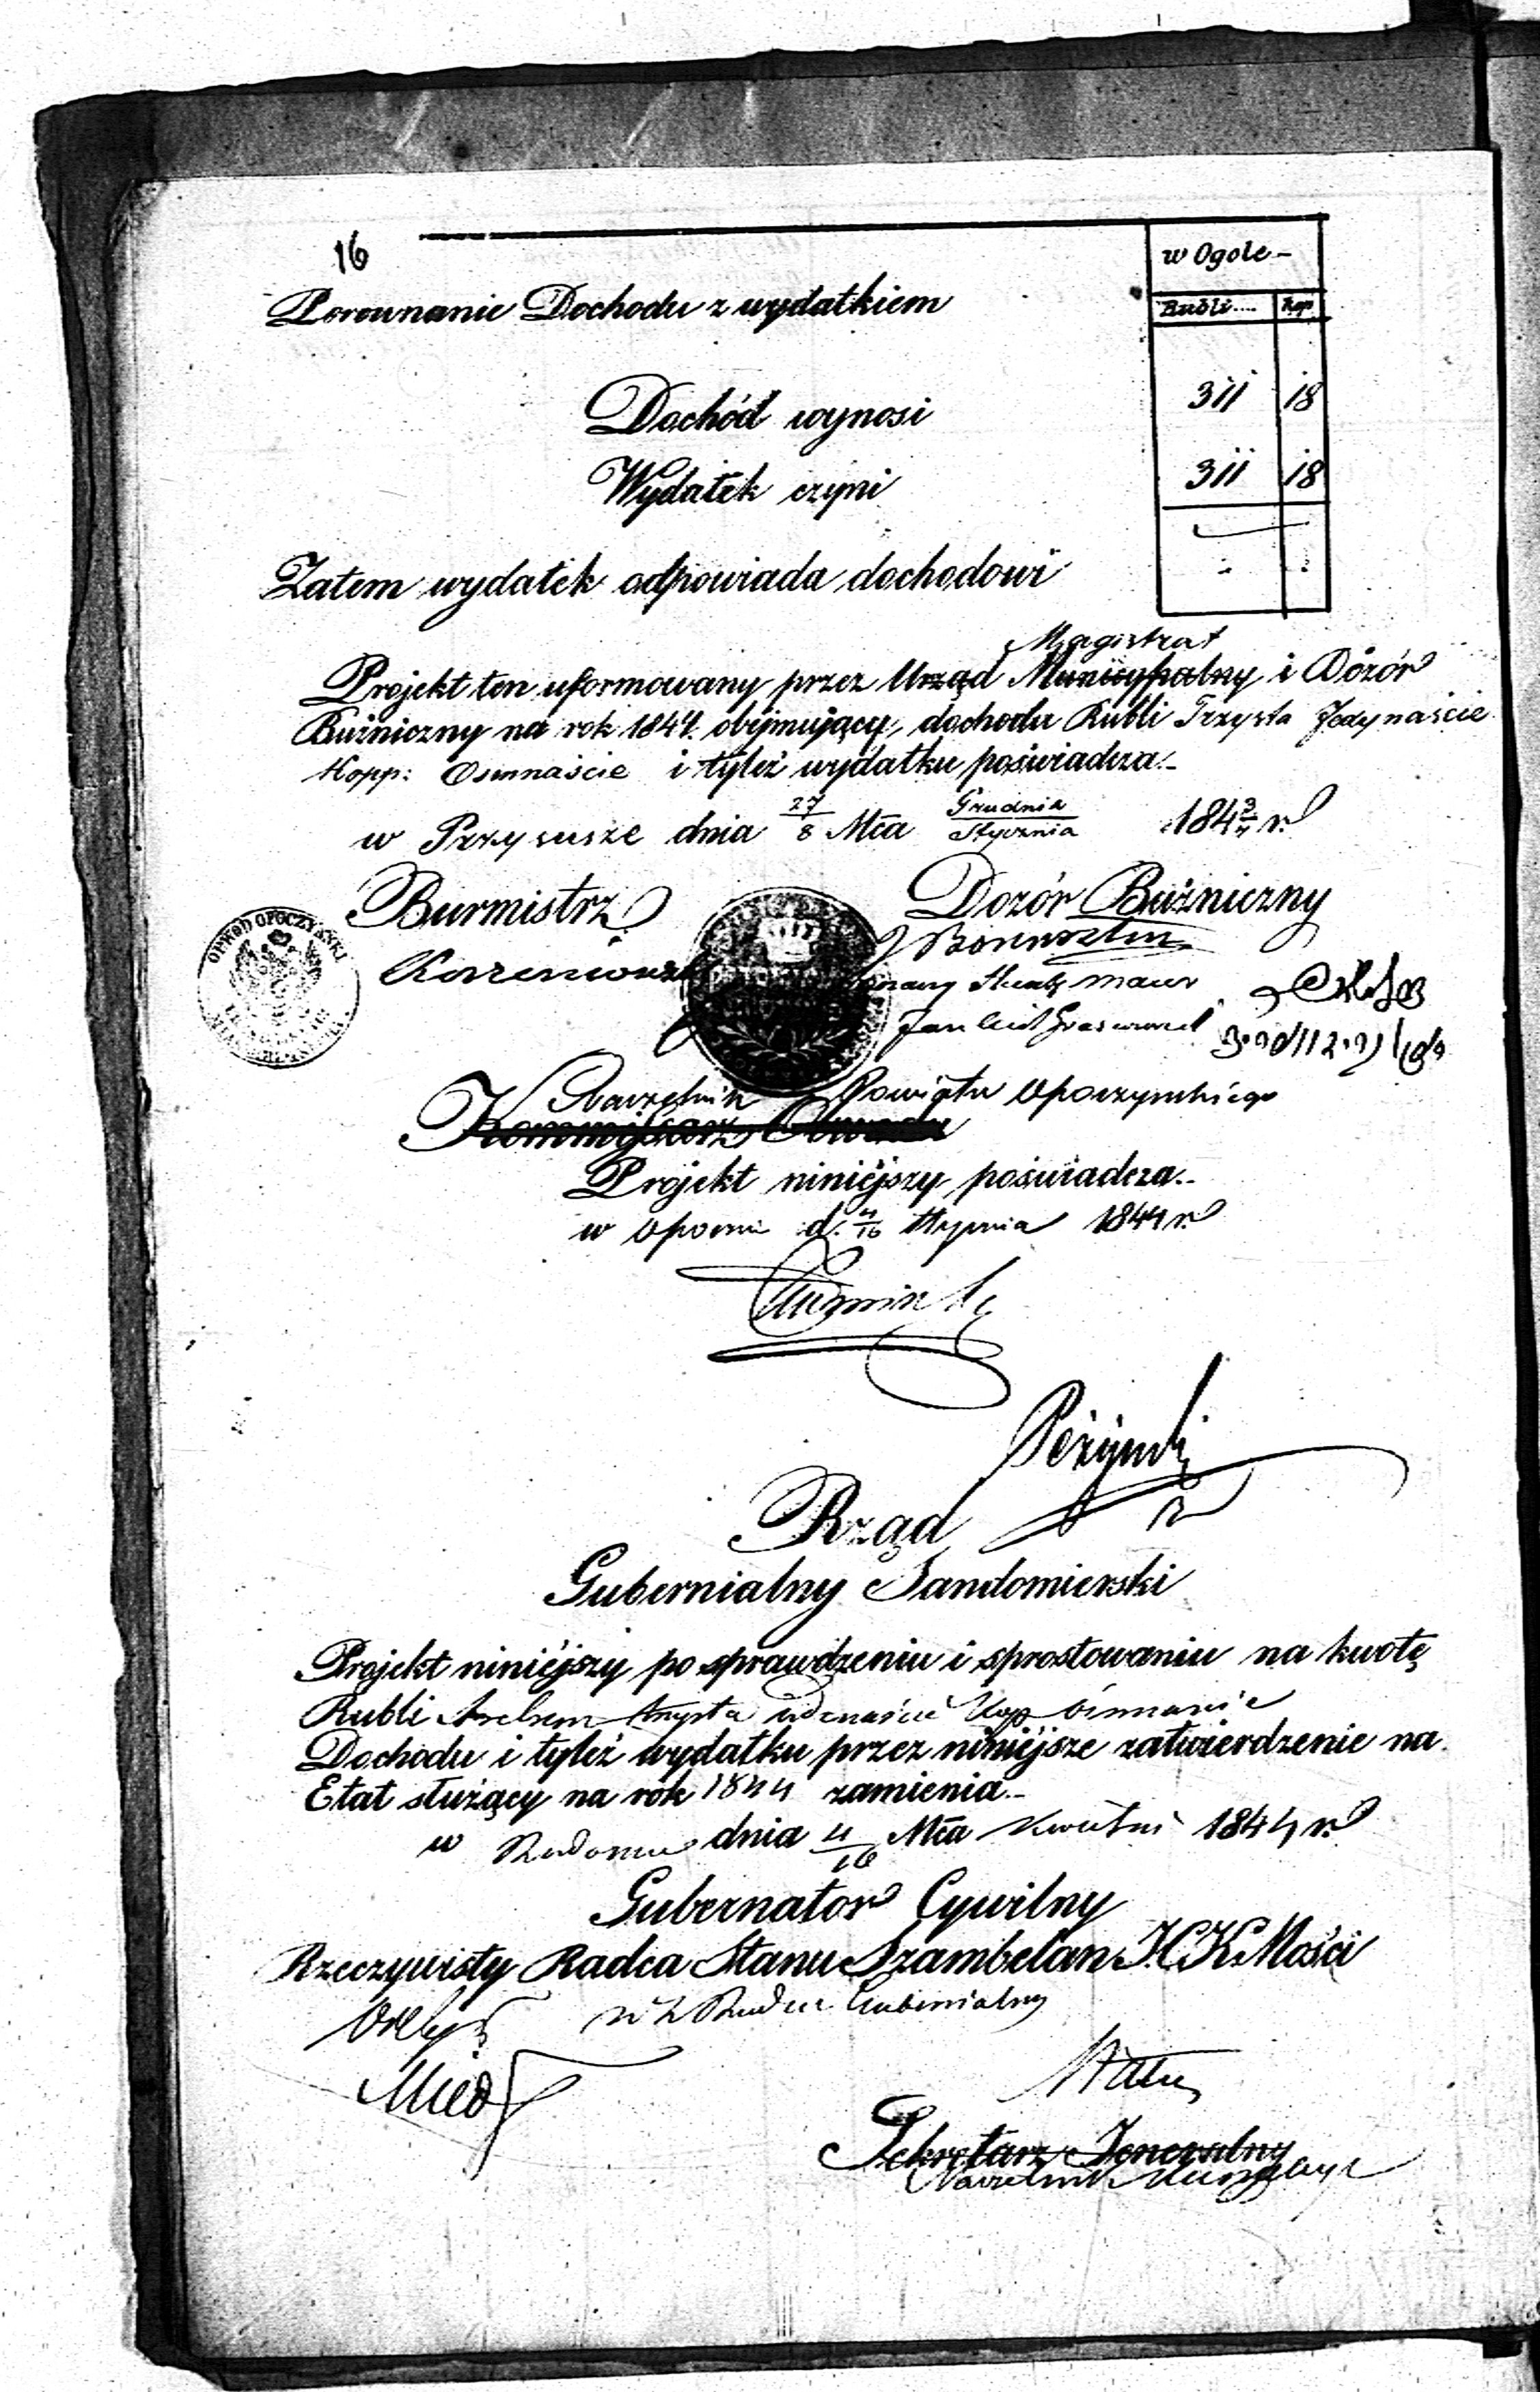 16
w Ogole -
Rubli.... kop
Porownanie Dochodu z wydatkiem
Dochód wynosi 311 18
Wydatek czyni 311 18
Zatem wydatek odpowiada dochodowi
Magistrat
Projekt ten uformowany przez Urząd Municypalny i Dozór
Bużniczny na rok 1844. obejmujący, dochodu Rubli Trzysta Jedynaście
Kopp: Osmnaście i tyleż wydatku poświadcza.-
w Przysusze dnia 27/8 Mca Grudnia/Stycznia 184 3/4 r.
Burmistrz Dozór Bużniczny
OPOCZYŃSKI
Naczelnik Powiatu Opoczyńskiego
Kommissarz
Projekt niniejszy poświadcza.-
w Opocznie d. 4/16 Stycznia 1844 r.
Rząd
Gubernialny Sandomierski
Projekt niniejszy po sprawdzeniu i sprostowaniu na kwotę
Rubli Srebrem trzysta jedenaście Kop ośmnaście
Dochodu i tyleż wydatku przez niniejsze zatwierdzenie na
Etat służący na rok 1844 zamienia.-
w Radomiu dnia 4/16 Mca Kwietnia 1844 r.
Gubernator Cywilny
Rzeczywisty Radca Stanu Szambelan J.C.K. Mości
w z Radca Gubernialny
Sekretarz Jeneralny
Naczelnik Kancelaryi